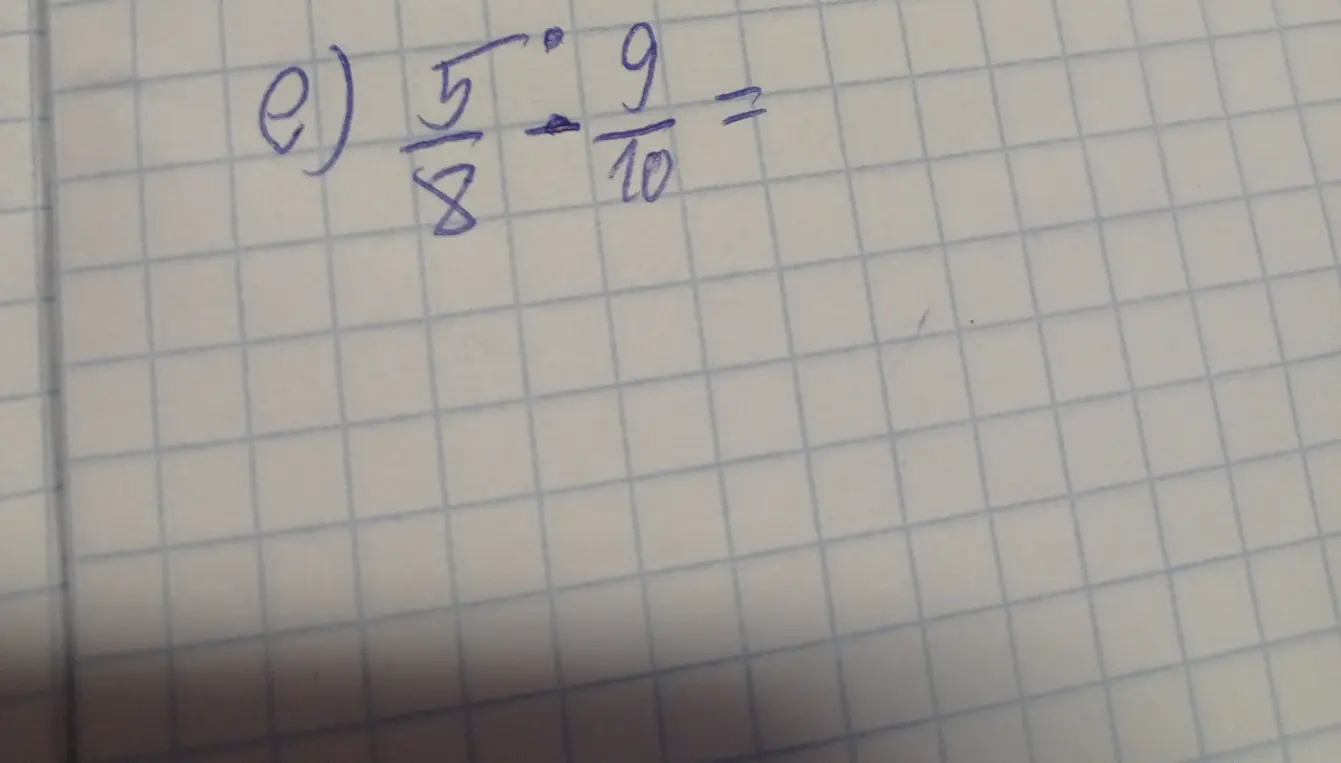 e) 5/8 - 9/10 =